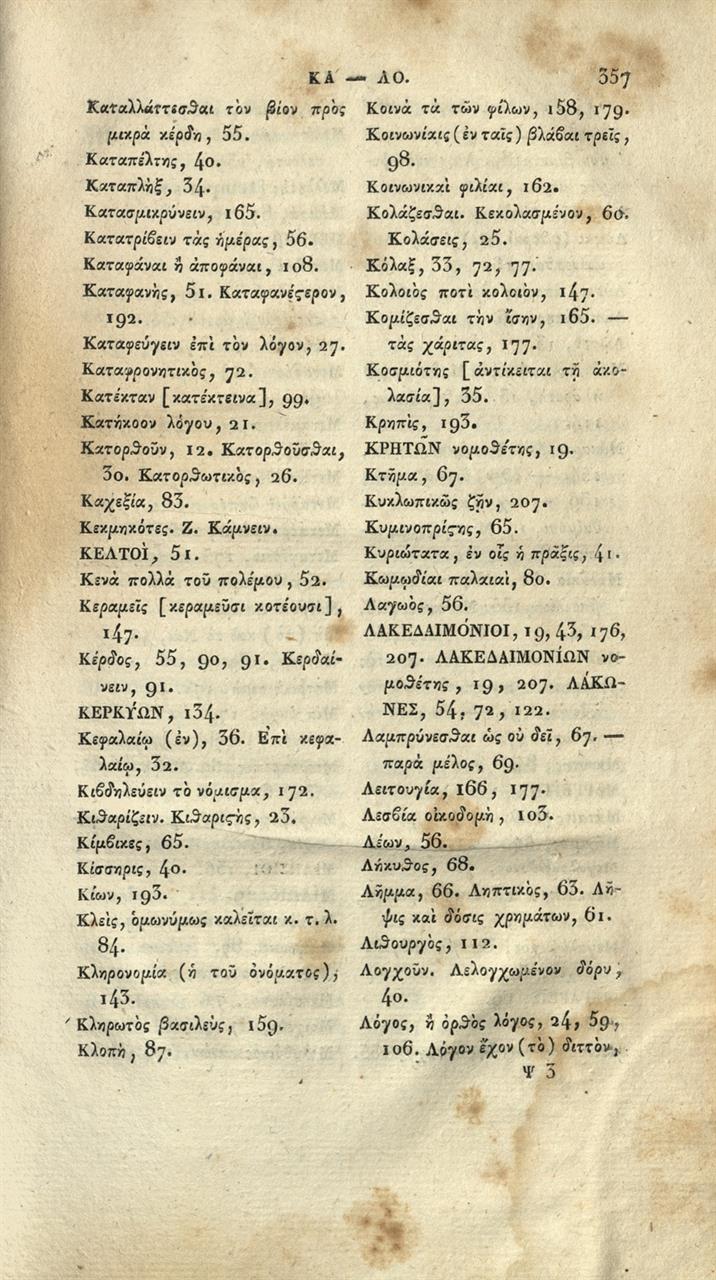 ΚΑ — ΛΟ. 357
Καταλλάττεσθαι τὸν βίον πρὸς
μικρὰ κέρδη, 55.
Καταπέλτης, 40.
Καταπλὴξ, 34.
Κατασμικρύνειν, 165.
Κατατρίβειν τὰς ἡμέρας, 56.
Καταφάναι ἢ ἀποφάναι, 108.
Καταφανὴς, 51. Καταφανέστερον,
192.
Καταφεύγειν ἐπὶ τὸν λόγον, 27.
Καταφρονητικὸς, 72.
Κατέκταν [κατέκτεινα], 99.
Κατήκοον λόγου, 21.
Κατορθοῦν, 12. Κατορθοῦσθαι,
30. Κατορθωτικὸς, 26.
Καχεξία, 83.
Κεκμηκότες. Ζ. Κάμνειν.
ΚΕΛΤΟῚ, 51.
Κενὰ πολλὰ τοῦ πολέμου, 52.
Κεραμεῖς [κεραμεῦσι κοτέουσι],
147.
Κέρδος, 55, 90, 91. Κερδαί-
νειν, 91.
ΚΕΡΚΎΩΝ, 134.
Κεφαλαίῳ (ἐν), 36. Ἐπὶ κεφα-
λαίῳ, 32.
Κιβδηλεύειν τὸ νόμισμα, 172.
Κιθαρίζειν. Κιθαριστὴς, 23.
Κίμβικες, 65.
Κίσσηρις, 40.
Κίων, 193.
Κλεὶς, ὁμωνύμως καλεῖται κ. τ. λ.
84.
Κληρονομία (ἡ τοῦ ὀνόματος),
143.
Κληρωτὸς βασιλεὺς, 159.
Κλοπὴ, 87.
Κοινὰ τὰ τῶν φίλων, 158, 179.
Κοινωνίαις (ἐν ταῖς) βλάβαι τρεῖς,
98.
Κοινωνικαὶ φιλίαι, 162.
Κολάζεσθαι. Κεκολασμένον, 60.
Κολάσεις, 25.
Κόλαξ, 33, 72, 77.
Κολοιὸς ποτὶ κολοιὸν, 147.
Κομίζεσθαι τὴν ἴσην, 165. —
τὰς χάριτας, 177.
Κοσμιότης [ἀντίκειται τῇ ἀκο-
λασίᾳ], 35.
Κρηπὶς, 193.
ΚΡΗΤΩ͂Ν νομοθέτης, 19.
Κτῆμα, 67.
Κυκλωπικῶς ζῇν, 207.
Κυμινοπρίστης, 65.
Κυριώτατα, ἐν οἷς ἡ πρᾶξις, 41.
Κωμῳδίαι παλαιαὶ, 80.
Λαγωὸς, 56.
ΛΑΚΕΔΑΙΜΌΝΙΟΙ, 19, 43, 176,
207. ΛΑΚΕΔΑΙΜΟΝΊΩΝ νο-
μοθέτης, 19, 207. ΛΆΚΩ-
ΝΕΣ, 54, 72, 122.
Λαμπρύνεσθαι ὡς οὐ δεῖ, 67. —
παρὰ μέλος, 69.
Λειτουγία, 166, 177.
Λεσβία οἰκοδομὴ, 103.
Λέων, 56.
Λήκυθος, 68.
Λῆμμα, 66. Ληπτικὸς, 63. Λῆ-
ψις καὶ δόσις χρημάτων, 61.
Λιθουργὸς, 112.
Λογχοῦν. Λελογχωμένον δόρυ,
40.
Λόγος, ἢ ὀρθὸς λόγος, 24, 59,
106. Λόγον ἔχον (τὸ) διττὸν,
Ψ 3